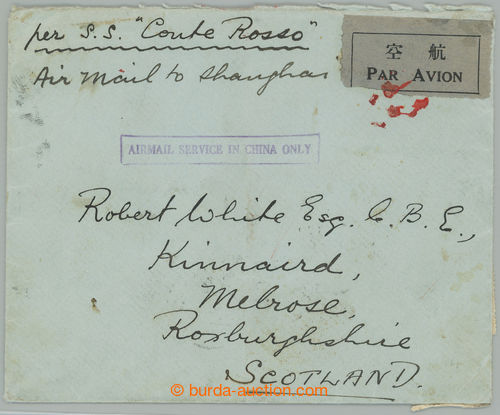 per S.S. "Conte Rosso"
Air Mail to Shanghai
空 航
PAR AVION
AIRMAIL SERVICE IN CHINA ONLY
Robert White Esq. C. B. E.,
Kinnaird,
Melrose,
Roxburghshire
SCOTLAND.
© burda-auction.com